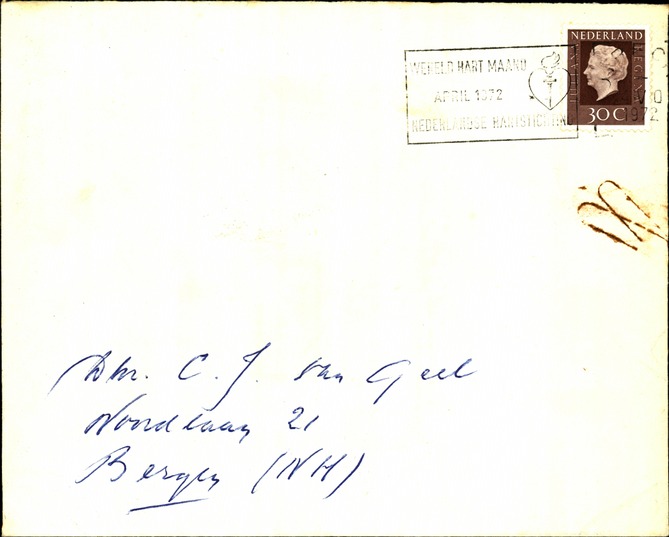 NEDERLAND
JULIANA REGINA
30 C
WERELD HART MAAND
APRIL 1972
NEDERLANDSE HARTSTICHTING
1972
Dhr. C. J. van Geel
Noordlaan 21
Bergen (NH)